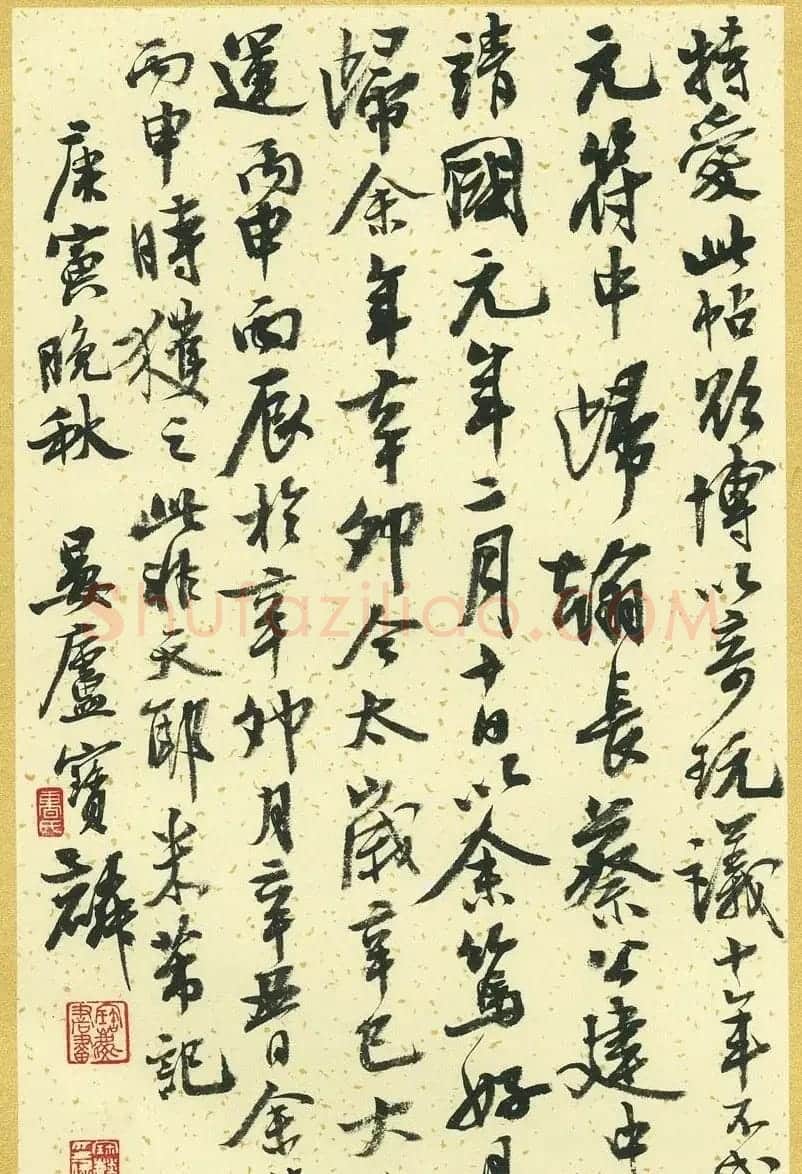 特愛此帖欲博以奇玩議十年不成
元符中歸翰長蔡公建中
請國元年二月十日以余篤好見
歸余年辛卯今太歲辛巳大
運丙申丙辰於辛卯月辛丑日余
丙申時獲之此非天耶米芾記
庚寅晚秋 晏廬寶麟
shufaziliao.com